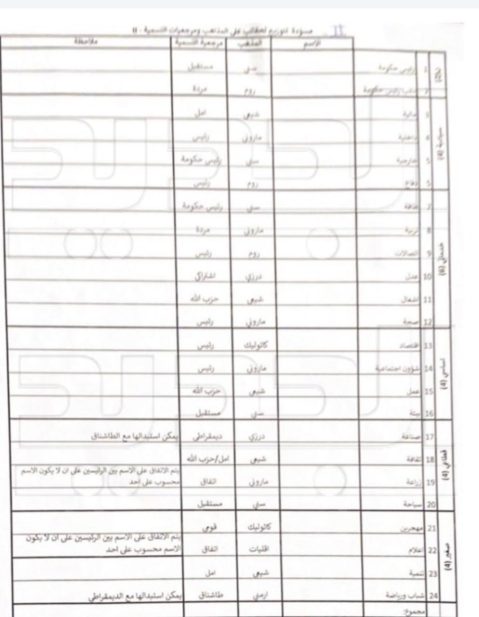 مسودة لتوزيع الحقائب على المذهب ومرجعيات التسمية - II
الاسم المذهب مرجعية التسمية ملاحظة
1 رئيس حكومة سني مستقبل
نائب رئيس حكومة روم مردة
سيادية (4)
3 مالية شيعي امل
4 داخلية ماروني رئيس
5 خارجية سني رئيس حكومة
دفاع روم رئيس
خدماتي (6)
7 طاقة سني رئيس حكومة
8 تربية ماروني مردة
9 اتصالات روم رئيس
10 عدل درزي اشتراكي
11 اشغال شيعي حزب الله
12 صحة ماروني رئيس
اساسي (4)
13 اقتصاد كاثوليك رئيس
14 شؤون اجتماعية ماروني رئيس
15 عمل شيعي حزب الله
16 بيئة سني مستقبل
قطاعي (4)
17 صناعة درزي ديمقراطي يمكن استبدالها مع الطاشناق
18 ثقافة شيعي امل/حزب الله
19 زراعة ماروني اتفاق يتم الاتفاق على الاسم بين الرئيسين على ان لا يكون الاسم
محسوب على احد
20 سياحة سني مستقبل
صغير (4)
21 مهجرين كاثوليك قومي
22 اعلام اقليات اتفاق يتم الاتفاق على الاسم بين الرئيسين على ان لا يكون
الاسم محسوب على احد
23 تنمية شيعي امل
24 شباب ورياضة ارمني طاشناق يمكن استبدالها مع الديمقراطي
مجموع: